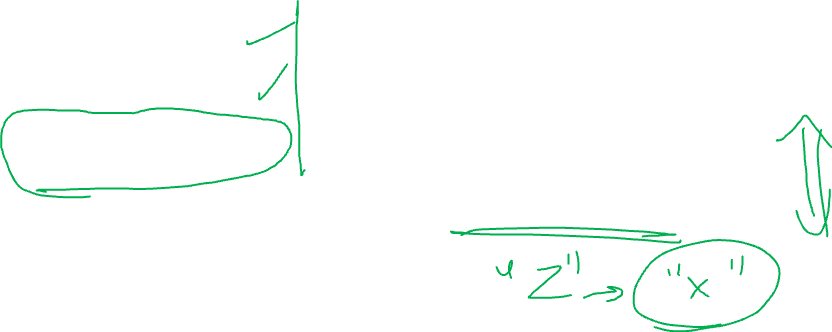 "Z" → "x"